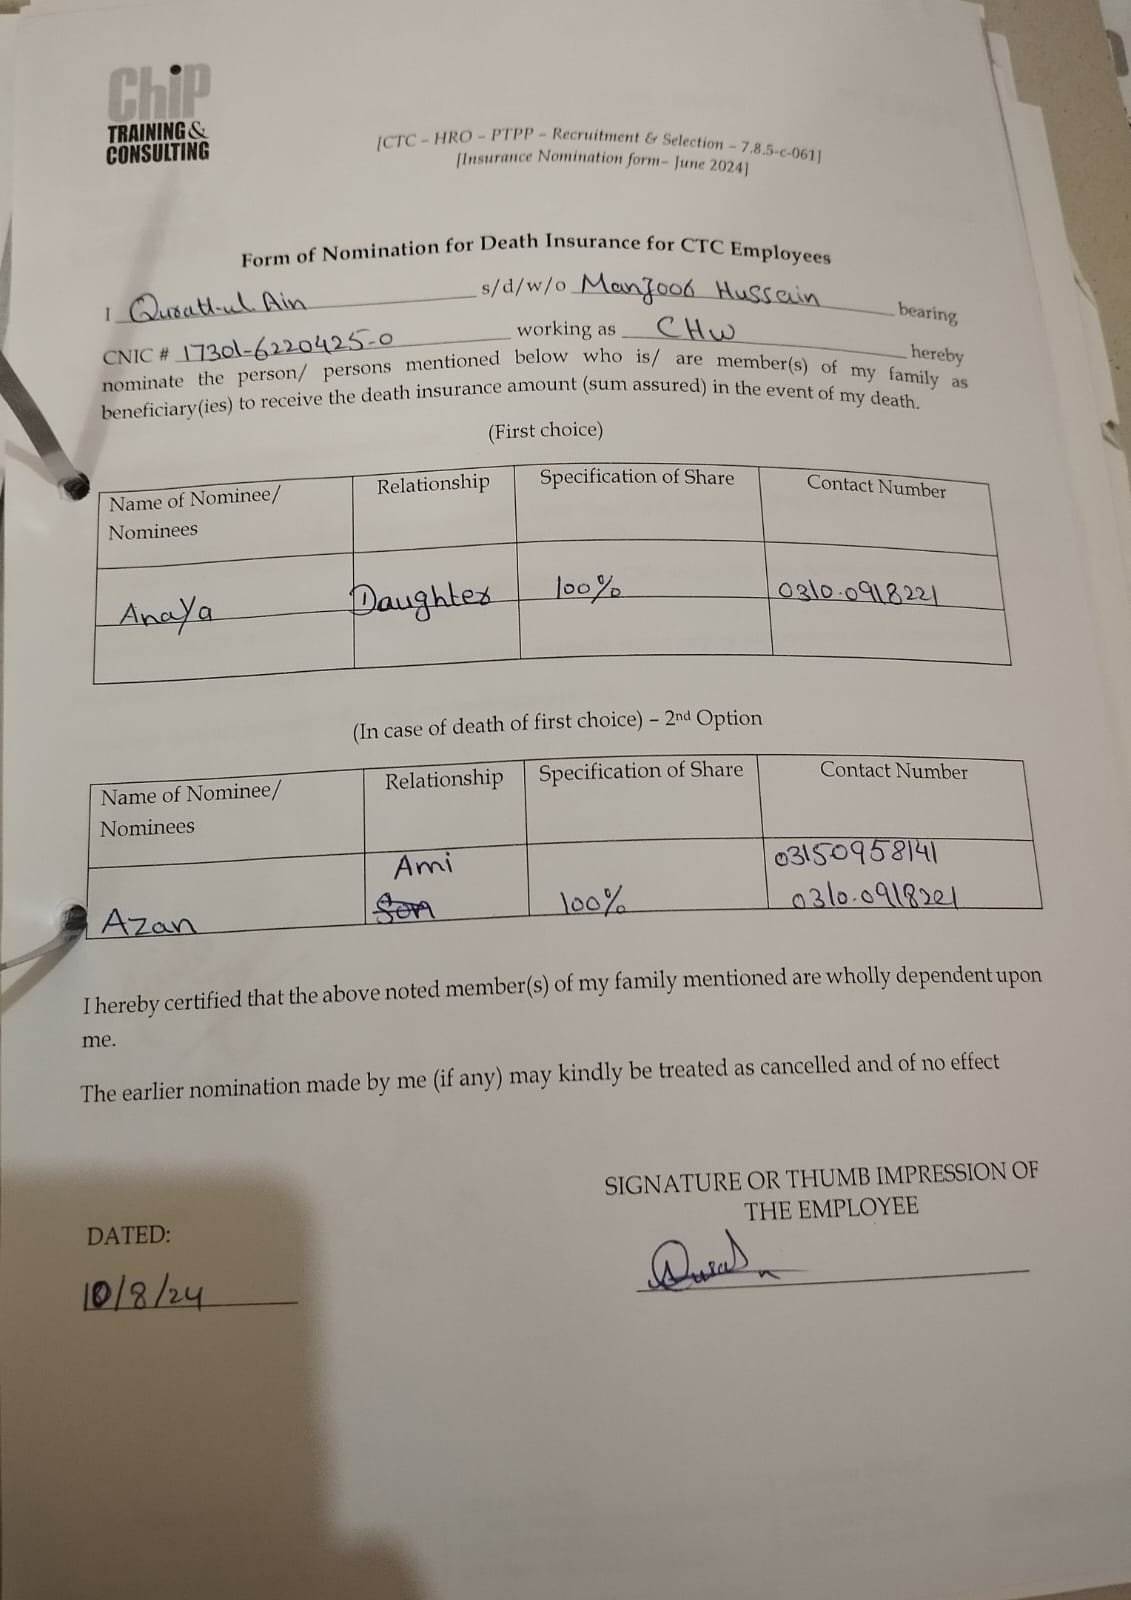 ChiP
TRAINING &
CONSULTING
[CTC – HRO – PTPP – Recruitment & Selection – 7.8.5-c-061]
[Insurance Nomination form– June 2024]
Form of Nomination for Death Insurance for CTC Employees
I Quratt-ul Ain s/d/w/o Manzoor Hussain bearing
CNIC # 17301-6220425-0 working as CHW hereby
nominate the person/ persons mentioned below who is/ are member(s) of my family as
beneficiary(ies) to receive the death insurance amount (sum assured) in the event of my death.
(First choice)
Name of Nominee/ Relationship Specification of Share Contact Number
Nominees
Anaya Daughter 100% 0310-0918221
(In case of death of first choice) – 2nd Option
Name of Nominee/ Relationship Specification of Share Contact Number
Nominees
Ami 03150958141
Azan Son 100% 0310-0918221
I hereby certified that the above noted member(s) of my family mentioned are wholly dependent upon
me.
The earlier nomination made by me (if any) may kindly be treated as cancelled and of no effect
SIGNATURE OR THUMB IMPRESSION OF
THE EMPLOYEE
DATED:
10/8/24